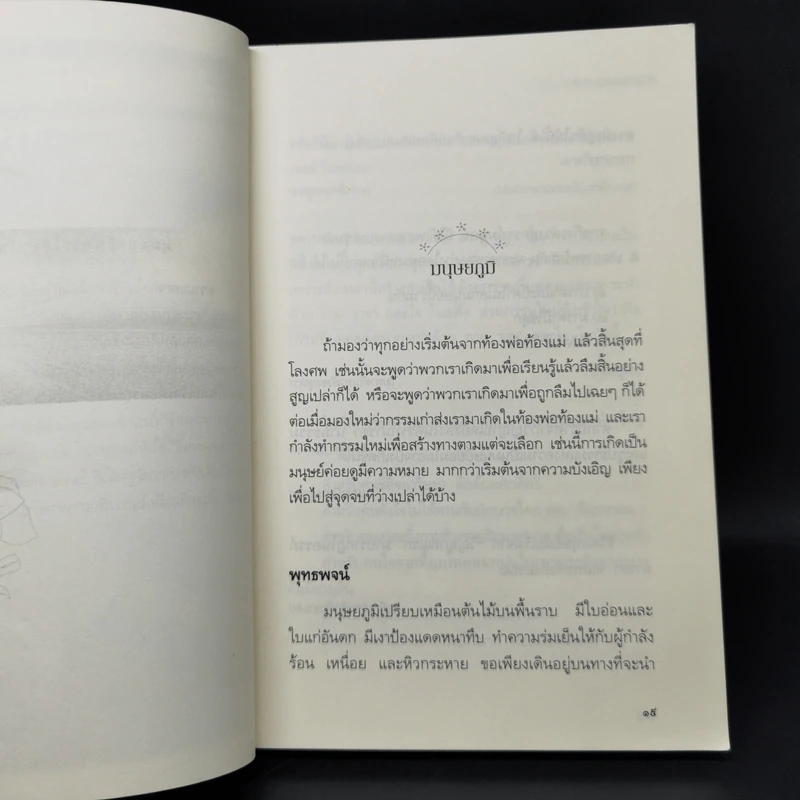 มนุษยภูมิ
ถ้ามองว่าทุกอย่างเริ่มต้นจากท้องพ่อท้องแม่ แล้วสิ้นสุดที่
โลงศพ เช่นนั้นจะพูดว่าพวกเราเกิดมาเพื่อเรียนรู้แล้วลืมสิ้นอย่าง
สูญเปล่าก็ได้ หรือจะพูดว่าพวกเราเกิดมาเพื่อถูกลืมไปเฉยๆ ก็ได้
ต่อเมื่อมองใหม่ว่ากรรมเก่าส่งเรามาเกิดในท้องพ่อท้องแม่ และเรา
กำลังทำกรรมใหม่เพื่อสร้างทางตามแต่จะเลือก เช่นนี้การเกิดเป็น
มนุษย์ค่อยดูมีความหมาย มากกว่าเริ่มต้นจากความบังเอิญ เพียง
เพื่อไปสู่จุดจบที่ว่างเปล่าได้บ้าง
พุทธพจน์
มนุษยภูมิเปรียบเหมือนต้นไม้บนพื้นราบ มีใบอ่อนและ
ใบแก่อันดก มีเงาป้องแดดหนาทึบ ทำความร่มเย็นให้กับผู้กำลัง
ร้อน เหนื่อย และหิวกระหาย ขอเพียงเดินอยู่บนทางที่จะนำ
๑๕